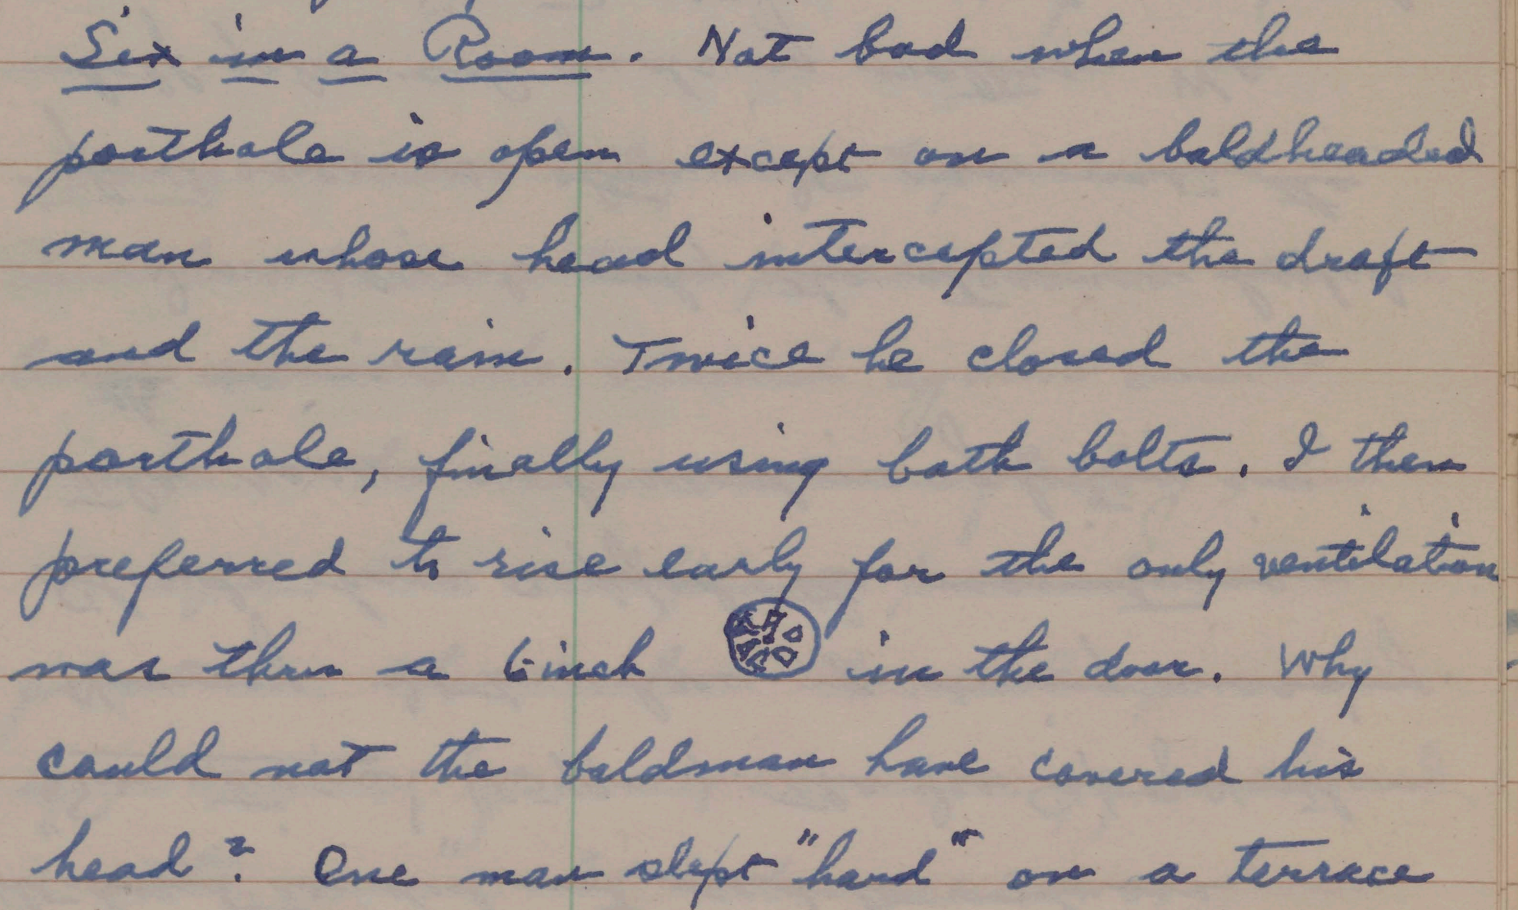 Six in a Room. Not bad when the
porthole is open except on a baldheaded
man whose head intercepted the draft
and the rain. Twice he closed the
porthole, finally using both bolts. I then
preferred to rise early for the only ventilation
was thru a 6 inch in the door. Why
could not the baldman have covered his
head? One man slept "hard" on a terrace